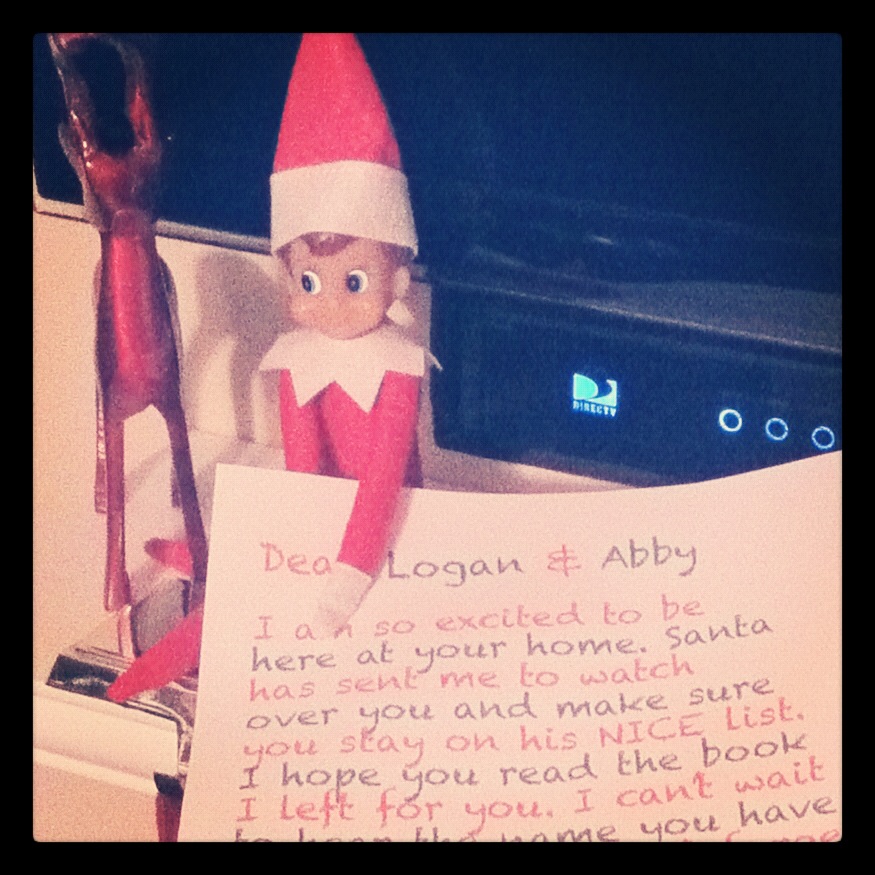 DIRECTV
Dea Logan & Abby
I am so excited to be
here at your home. Santa
has sent me to watch
over you and make sure
you stay on his NICE list.
I hope you read the book
I left for you. I can't wait
to hear the name you have